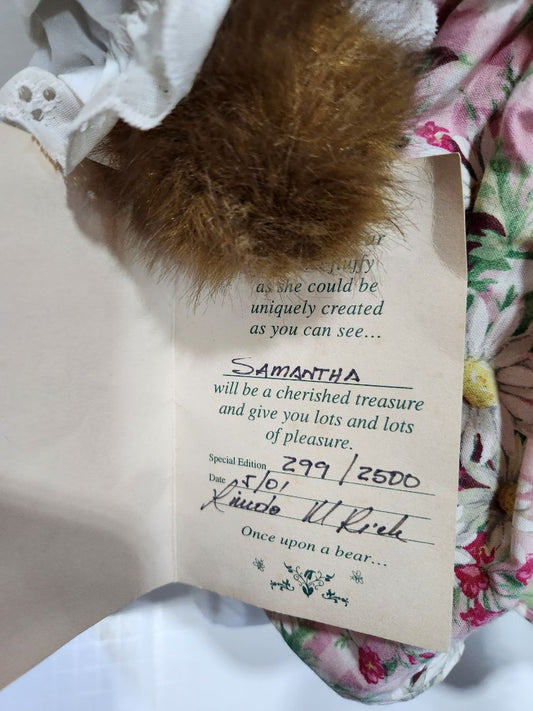 as she could be
uniquely created
as you can see...
SAMANTHA
will be a cherished treasure
and give you lots and lots
of pleasure.
Special Edition 299/2500
Date 5/01
M Rich
Once upon a bear...